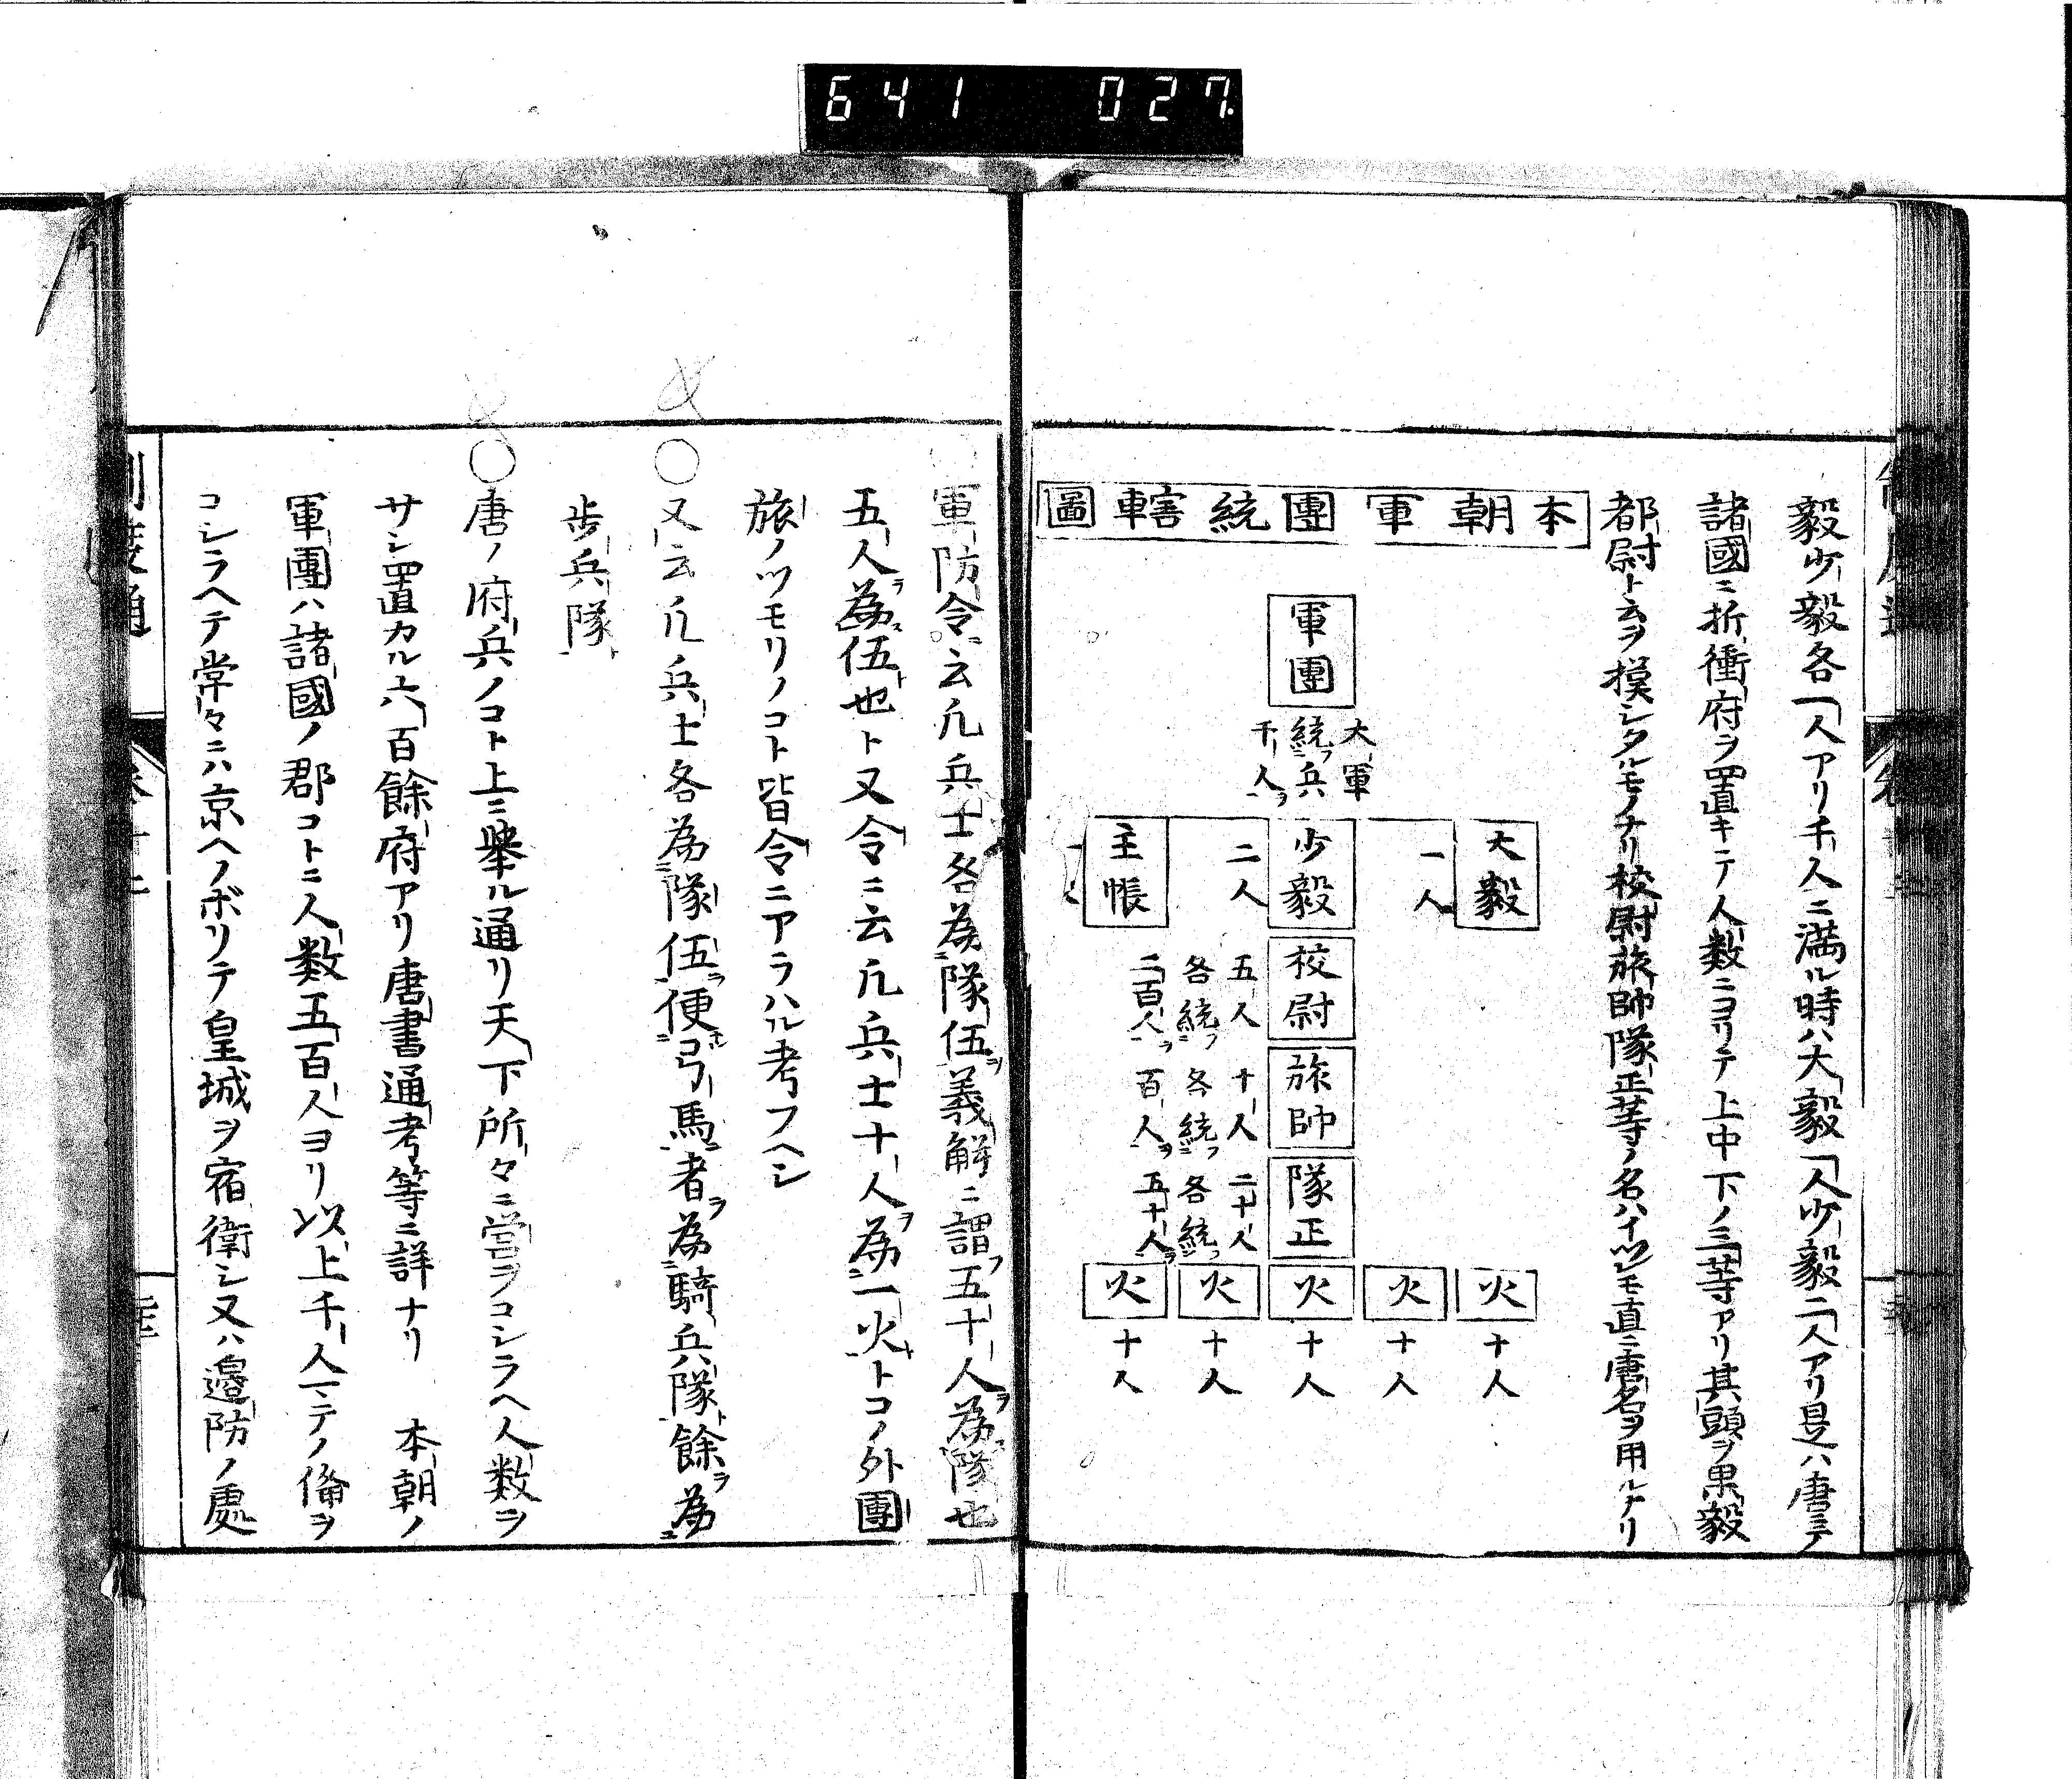 641 027
毅少毅各一人アリ千人ニ満ル時ハ大毅一人少毅二人アリ是ハ唐ニテ
諸國ニ折衝府ヲ置キテ人数ニヨリテ上中下ノ三等アリ其頭ヲ果毅
都尉ト云ヲ摸シタルモノナリ校尉旅帥隊正等ノ名ハイツレモ直ニ唐名ヲ用ルナリ
本朝軍團統轄圖
軍團
大軍
統フ兵
千人ヲ
大毅
一人
少毅
二人
主帳
一人
校尉
五人
各統フ
二百人ヲ
旅帥
十人
各統フ
百人ヲ
隊正
二十人
各統フ
五十人ヲ
火
十人
火
十人
火
十人
火
十人
火
十人
○軍防令ニ云凡兵士各為隊伍ヲ義解ニ謂フ五十人ヲ為隊也
五人ヲ為伍ト也ト又令ニ云凡兵士十人ヲ為一火トコノ外團
旅ノツモリノコト皆令ニアラハル考フヘシ
○又云凡兵士各為隊伍ヲ便弓馬者ヲ為騎兵隊ト餘ヲ為
歩兵隊
○唐ノ府兵ノコト上ニ舉ル通リ天下所々ニ営ヲコシラヘ人数ヲ
サシ置カル六百餘府アリ唐書通考等ニ詳ナリ 本朝ノ
軍團ハ諸國ノ郡コトニ人数五百人ヨリ以上千人マテノ備ヲ
コシラヘテ常々ニハ京ヘノボリテ皇城ヲ宿衛シ又ハ邉防ノ處
制度通
巻十二